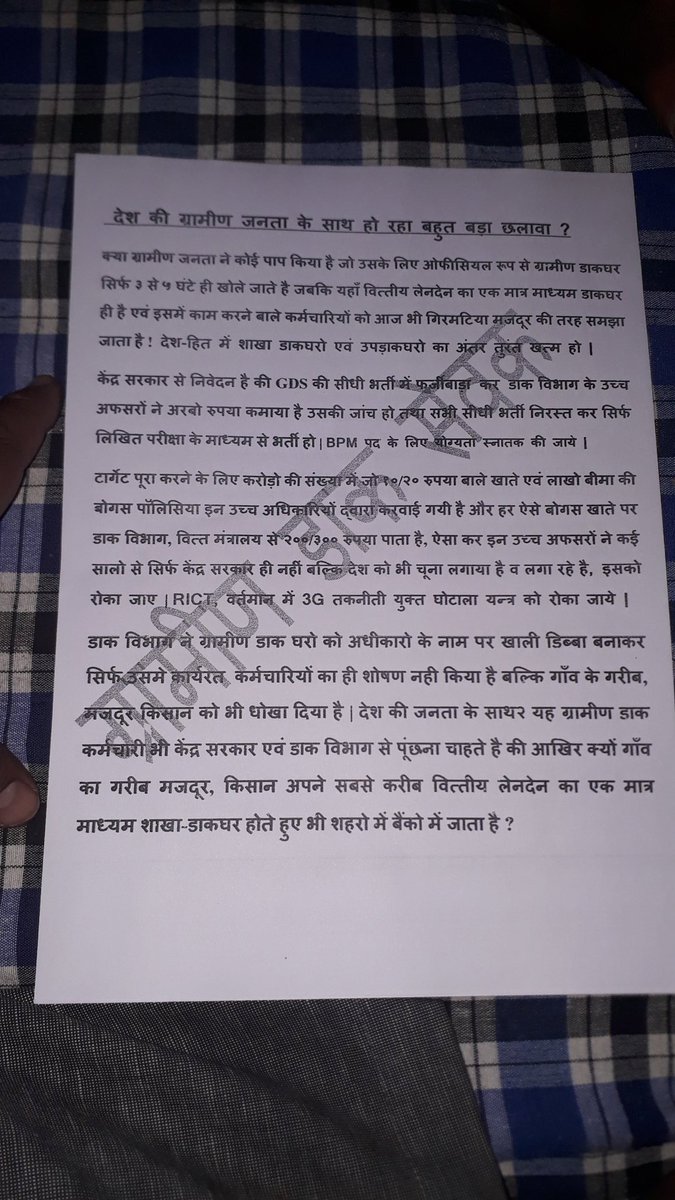 देश की ग्रामीण जनता के साथ हो रहा बहुत बड़ा छलावा ?
क्या ग्रामीण जनता ने कोई पाप किया है जो उसके लिए ओफीसियल रूप से ग्रामीण डाकघर
सिर्फ ३ से ५ घंटे ही खोले जाते है जबकि यहाँ वित्तीय लेनदेन का एक मात्र माध्यम डाकघर
ही है एवं इसमें काम करने बाले कर्मचारियों को आज भी गिरमटिया मजदूर की तरह समझा
जाता है ! देश-हित में शाखा डाकघरो एवं उपड़ाकघरो का अंतर तुरंत खत्म हो |
केंद्र सरकार से निवेदन है की GDS की सीधी भर्ती में फर्जीबाड़ा कर डाक विभाग के उच्च
अफसरों ने अरबो रुपया कमाया है उसकी जांच हो तथा सभी सीधी भर्ती निरस्त कर सिर्फ
लिखित परीक्षा के माध्यम से भर्ती हो | BPM पद के लिए योग्यता स्नातक की जाये |
टार्गेट पूरा करने के लिए करोड़ो की संख्या में जो १०/२० रुपया बाले खाते एवं लाखो बीमा की
बोगस पॉलिसिया इन उच्च अधिकारियों द्वारा करवाई गयी है और हर ऐसे बोगस खाते पर
डाक विभाग, वित्त मंत्रालय से २००/३०० रुपया पाता है, ऐसा कर इन उच्च अफसरों ने कई
सालो से सिर्फ केंद्र सरकार ही नहीं बल्कि देश को भी चूना लगाया है व लगा रहे है, इसको
रोका जाए | RICT, वर्तमान में 3G तकनीती युक्त घोटाला यन्त्र को रोका जाये |
डाक विभाग ने ग्रामीण डाक घरो को अधीकारो के नाम पर खाली डिब्बा बनाकर
सिर्फ उसमे कार्यरत कर्मचारियों का ही शोषण नही किया है बल्कि गाँव के गरीब,
मजदूर किसान को भी धोखा दिया है | देश की जनता के साथर यह ग्रामीण डाक
कर्मचारी भी केंद्र सरकार एवं डाक विभाग से पूंछना चाहते है की आखिर क्यों गाँव
का गरीब मजदूर, किसान अपने सबसे करीब वित्तीय लेनदेन का एक मात्र
माध्यम शाखा-डाकघर होते हुए भी शहरो में बैंको में जाता है ?
ग्रामीण डाक सेवक